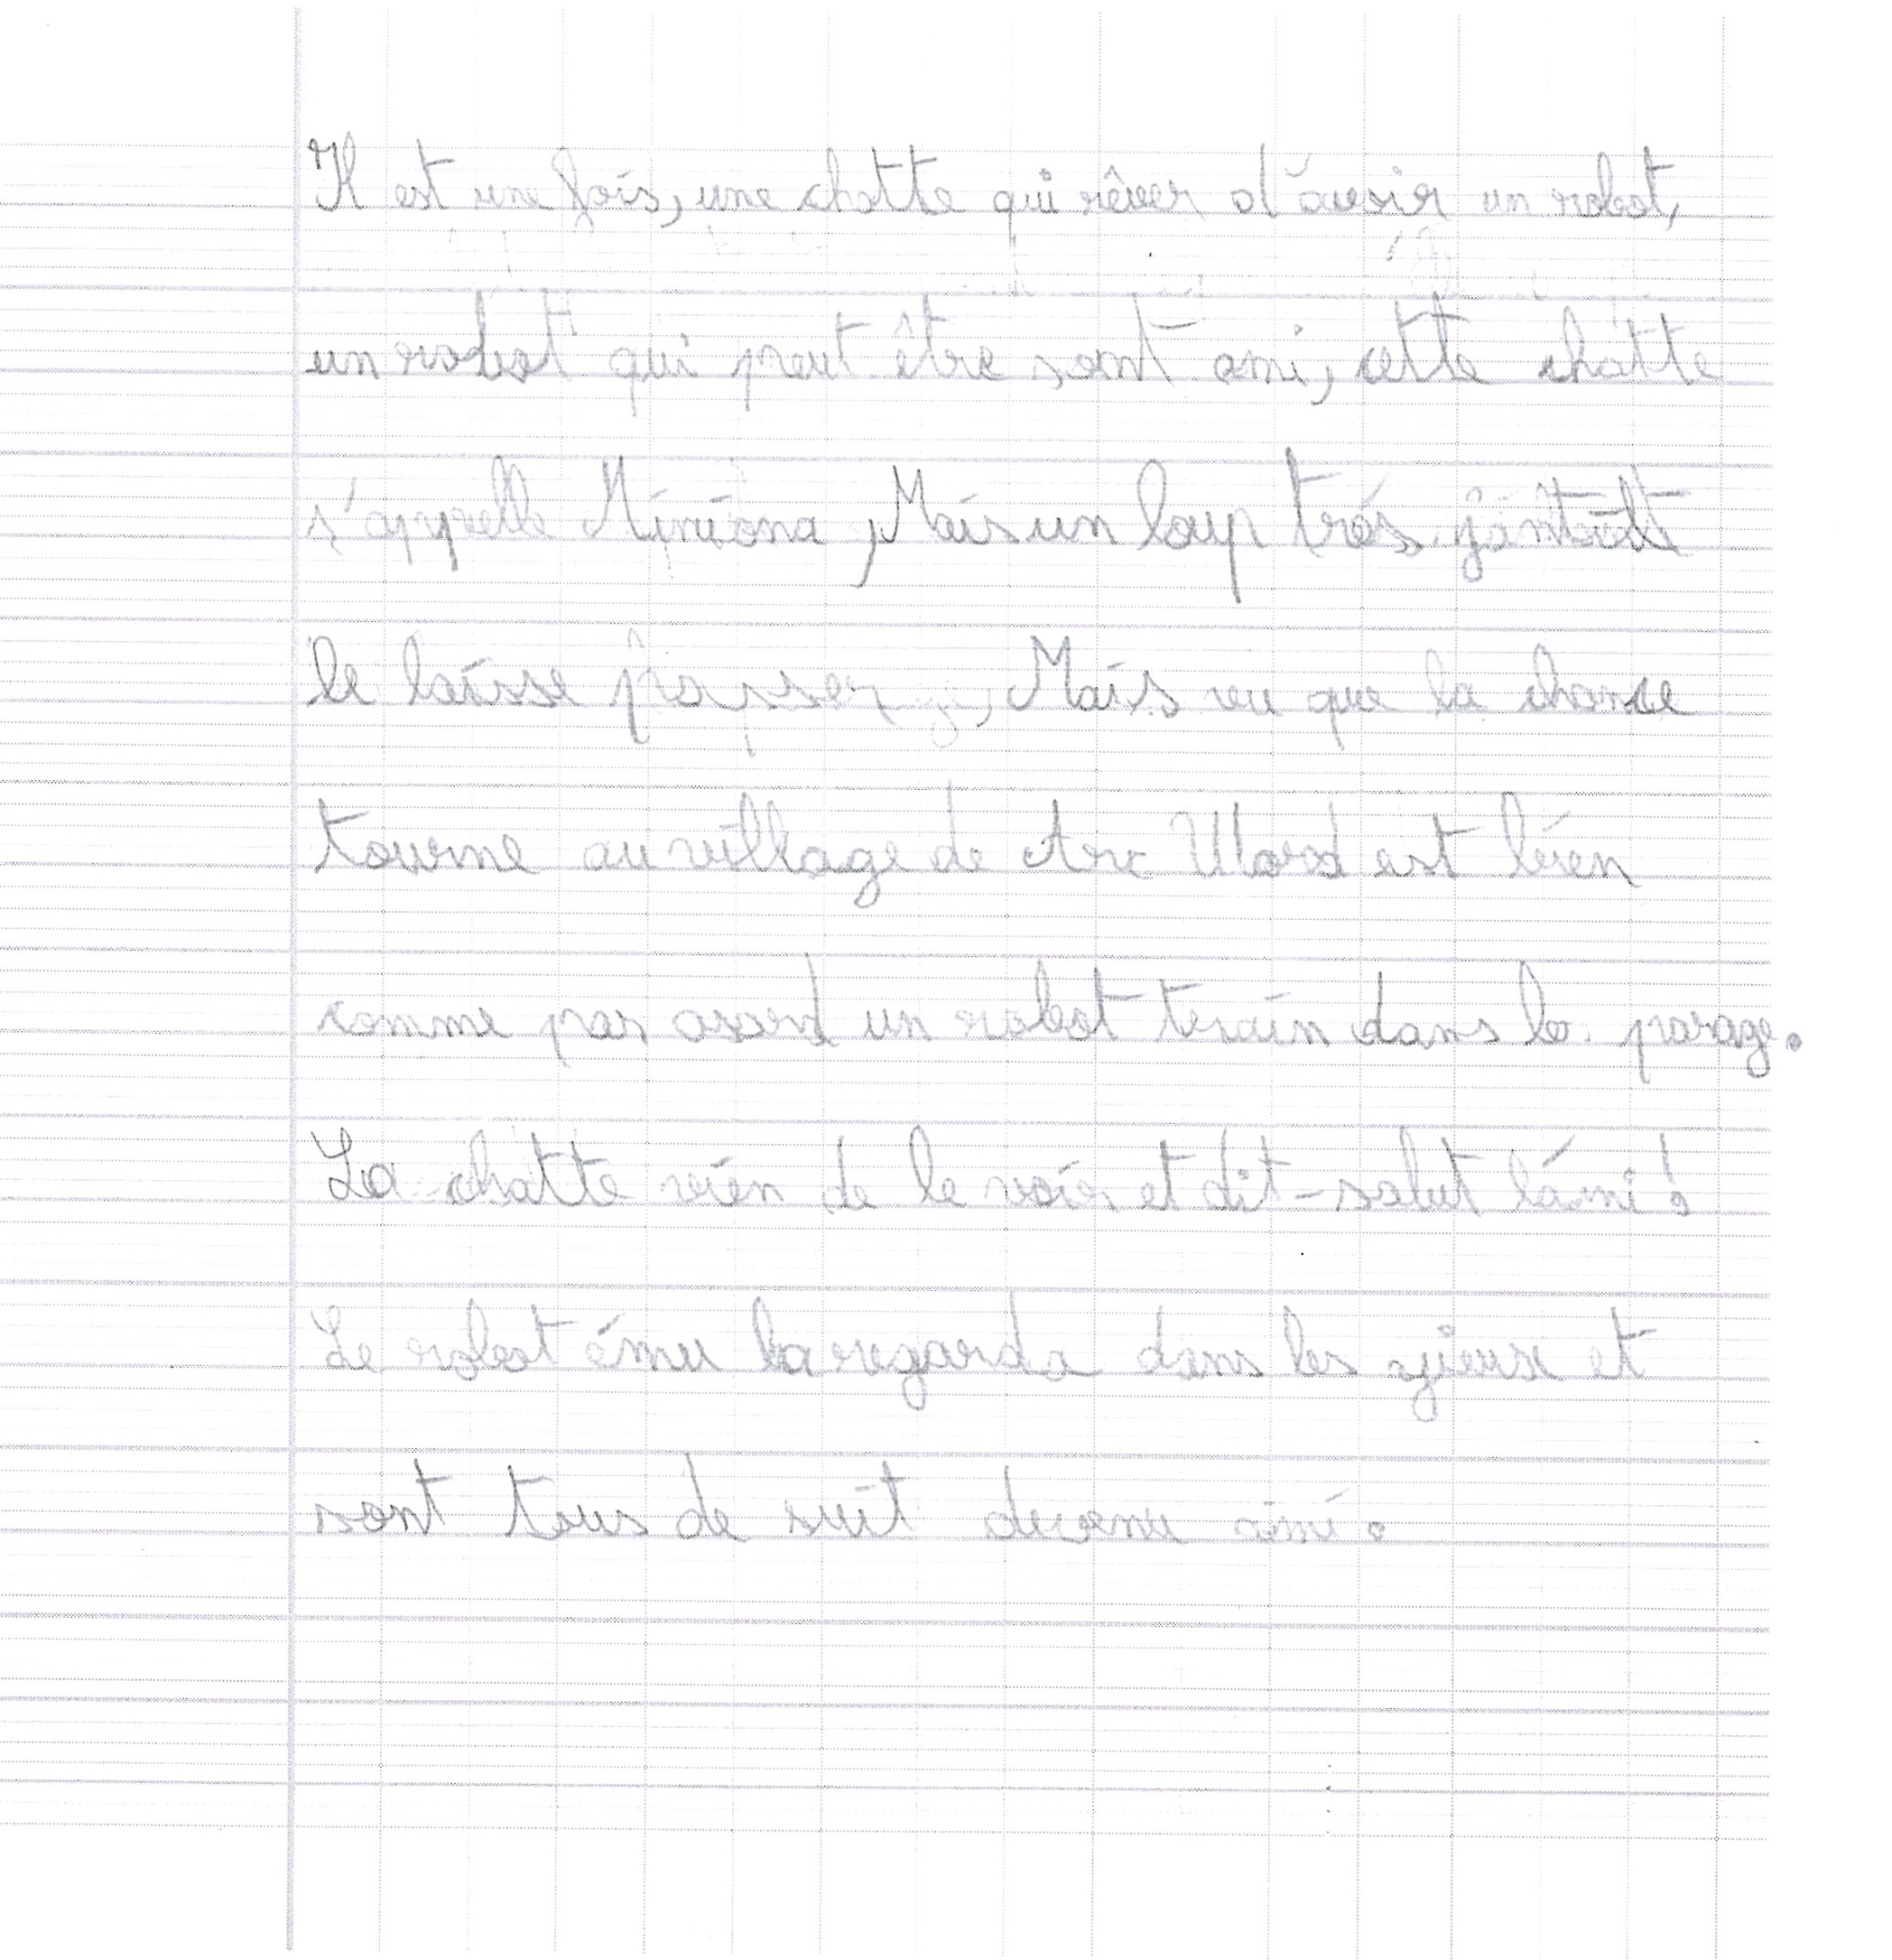 Il est une fois, une chatte qui rêver d'avoir un robot,
un robot qui peut être sont ami, cette chatte
s'appelle Miriona, Mais un loup trés
le laisse passer, Mais vu que la chance
tourne au village de Arc est bien
comme par asard un robot terain dans le parage.
La chatte vien de le voir et dit - salut l'ami !
Le robot ému la regarda dans les yieux et
sont tous de suit devenu ami.